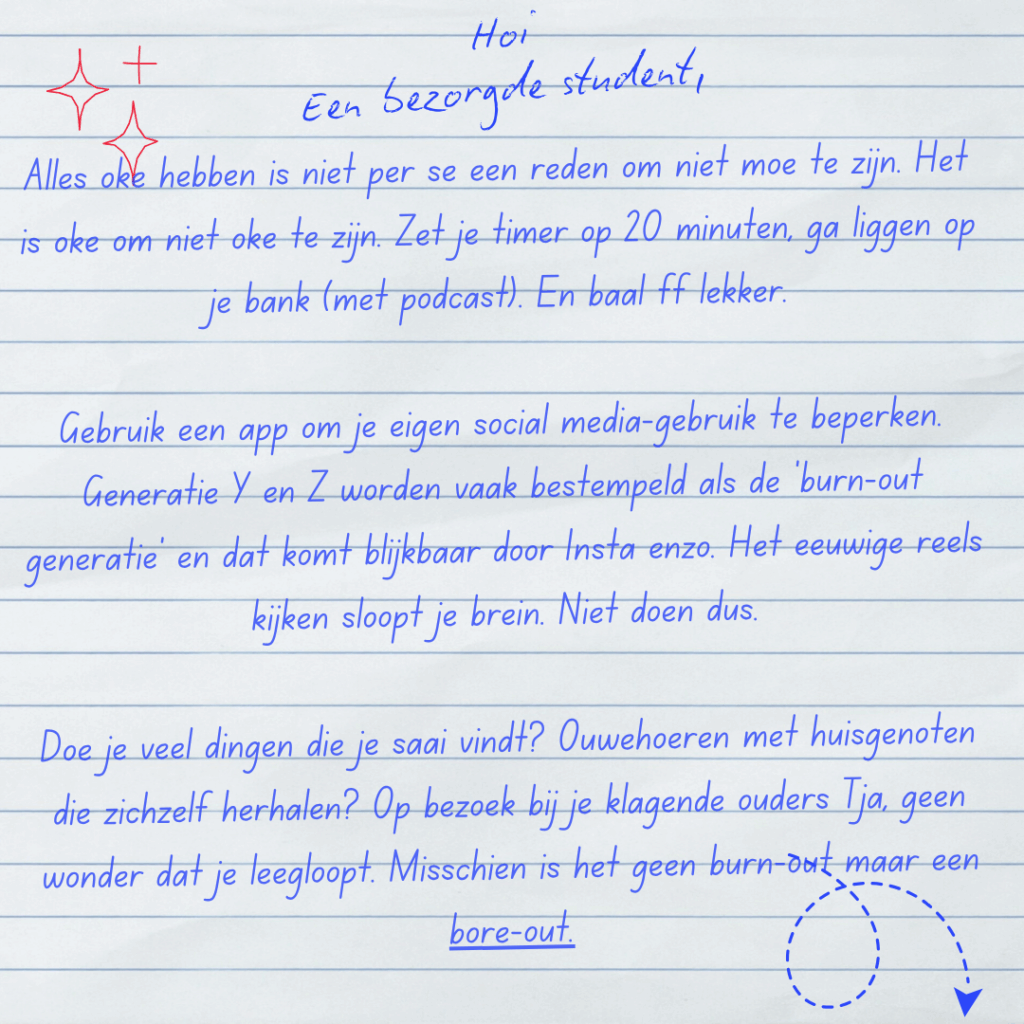 Hoi
Een bezorgde student,
Alles oke hebben is niet per se een reden om niet moe te zijn. Het
is oke om niet oke te zijn. Zet je timer op 20 minuten, ga liggen op
je bank (met podcast). En baal ff lekker.
Gebruik een app om je eigen social media-gebruik te beperken.
Generatie Y en Z worden vaak bestempeld als de 'burn-out
generatie' en dat komt blijkbaar door Insta enzo. Het eeuwige reels
kijken sloopt je brein. Niet doen dus.
Doe je veel dingen die je saai vindt? Ouwehoeren met huisgenoten
die zichzelf herhalen? Op bezoek bij je klagende ouders Tja, geen
wonder dat je leegloopt. Misschien is het geen burn-out maar een
bore-out.